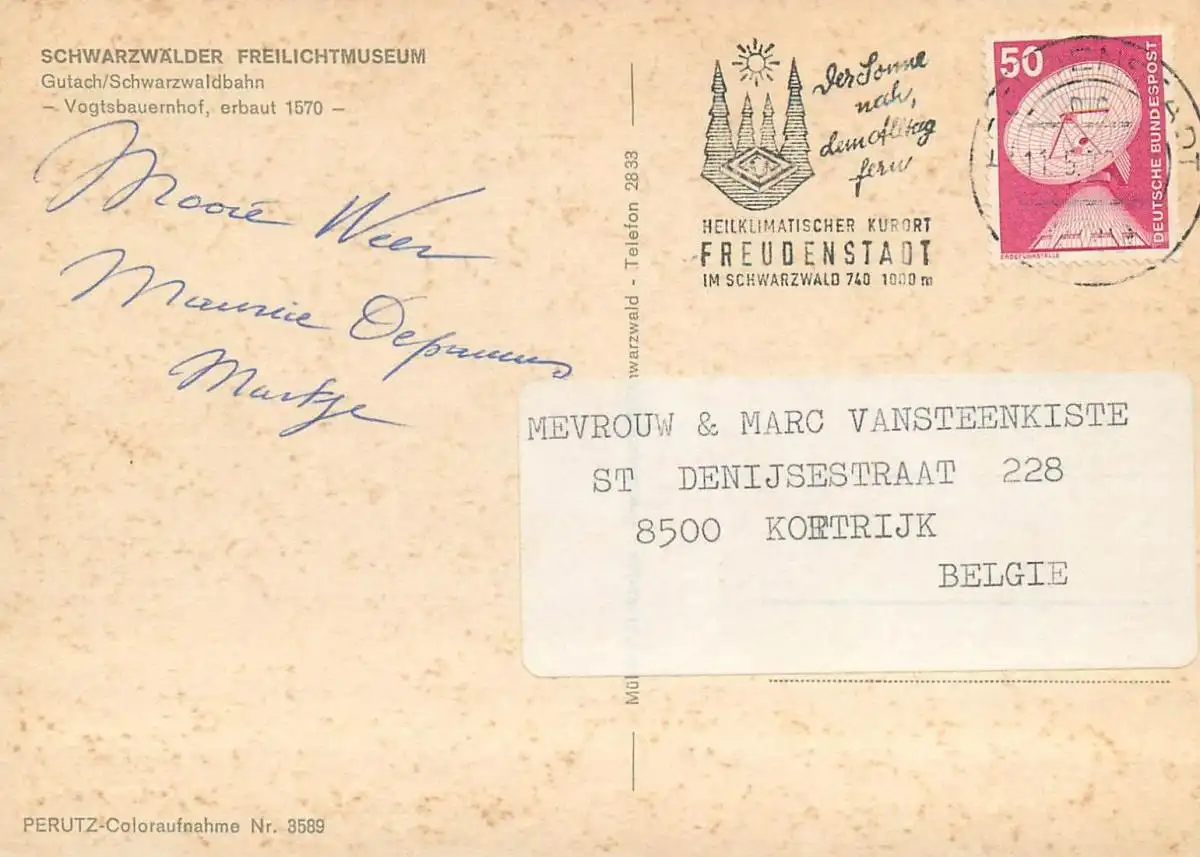 SCHWARZWÄLDER FREILICHTMUSEUM
Gutach/Schwarzwaldbahn
— Vogtsbauernhof, erbaut 1570 —
Mooie Weer
Maurice Depauuw
Martje
PERUTZ-Coloraufnahme Nr. 3589
hwarzwald - Telefon 2833
der Sonne
nah,
dem Alltag
fern
HEILKLIMATISCHER KURORT
FREUDENSTADT
IM SCHWARZWALD 740 1000 m
50
DEUTSCHE BUNDESPOST
ERDEFUNKSTELLE
11.5.
MEVROUW & MARC VANSTEENKISTE
ST DENIJSESTRAAT 228
8500 KORTRIJK
BELGIE